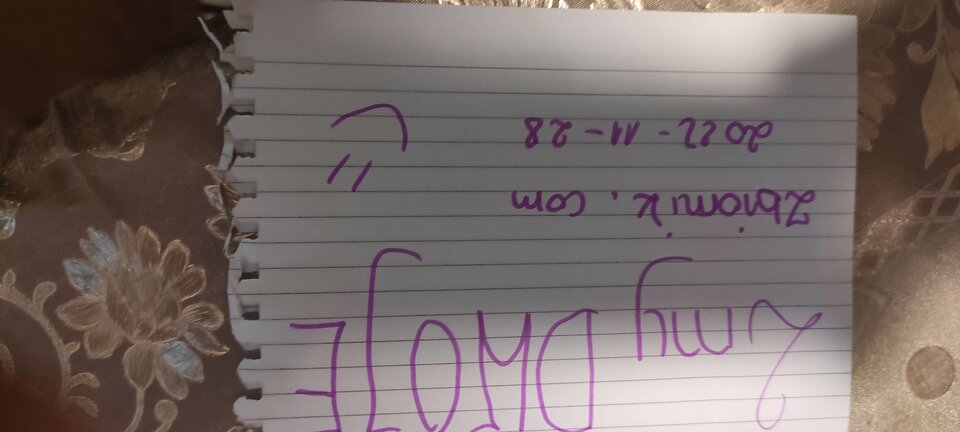 my DWOJE
Zbiornik.com
2022-11-28